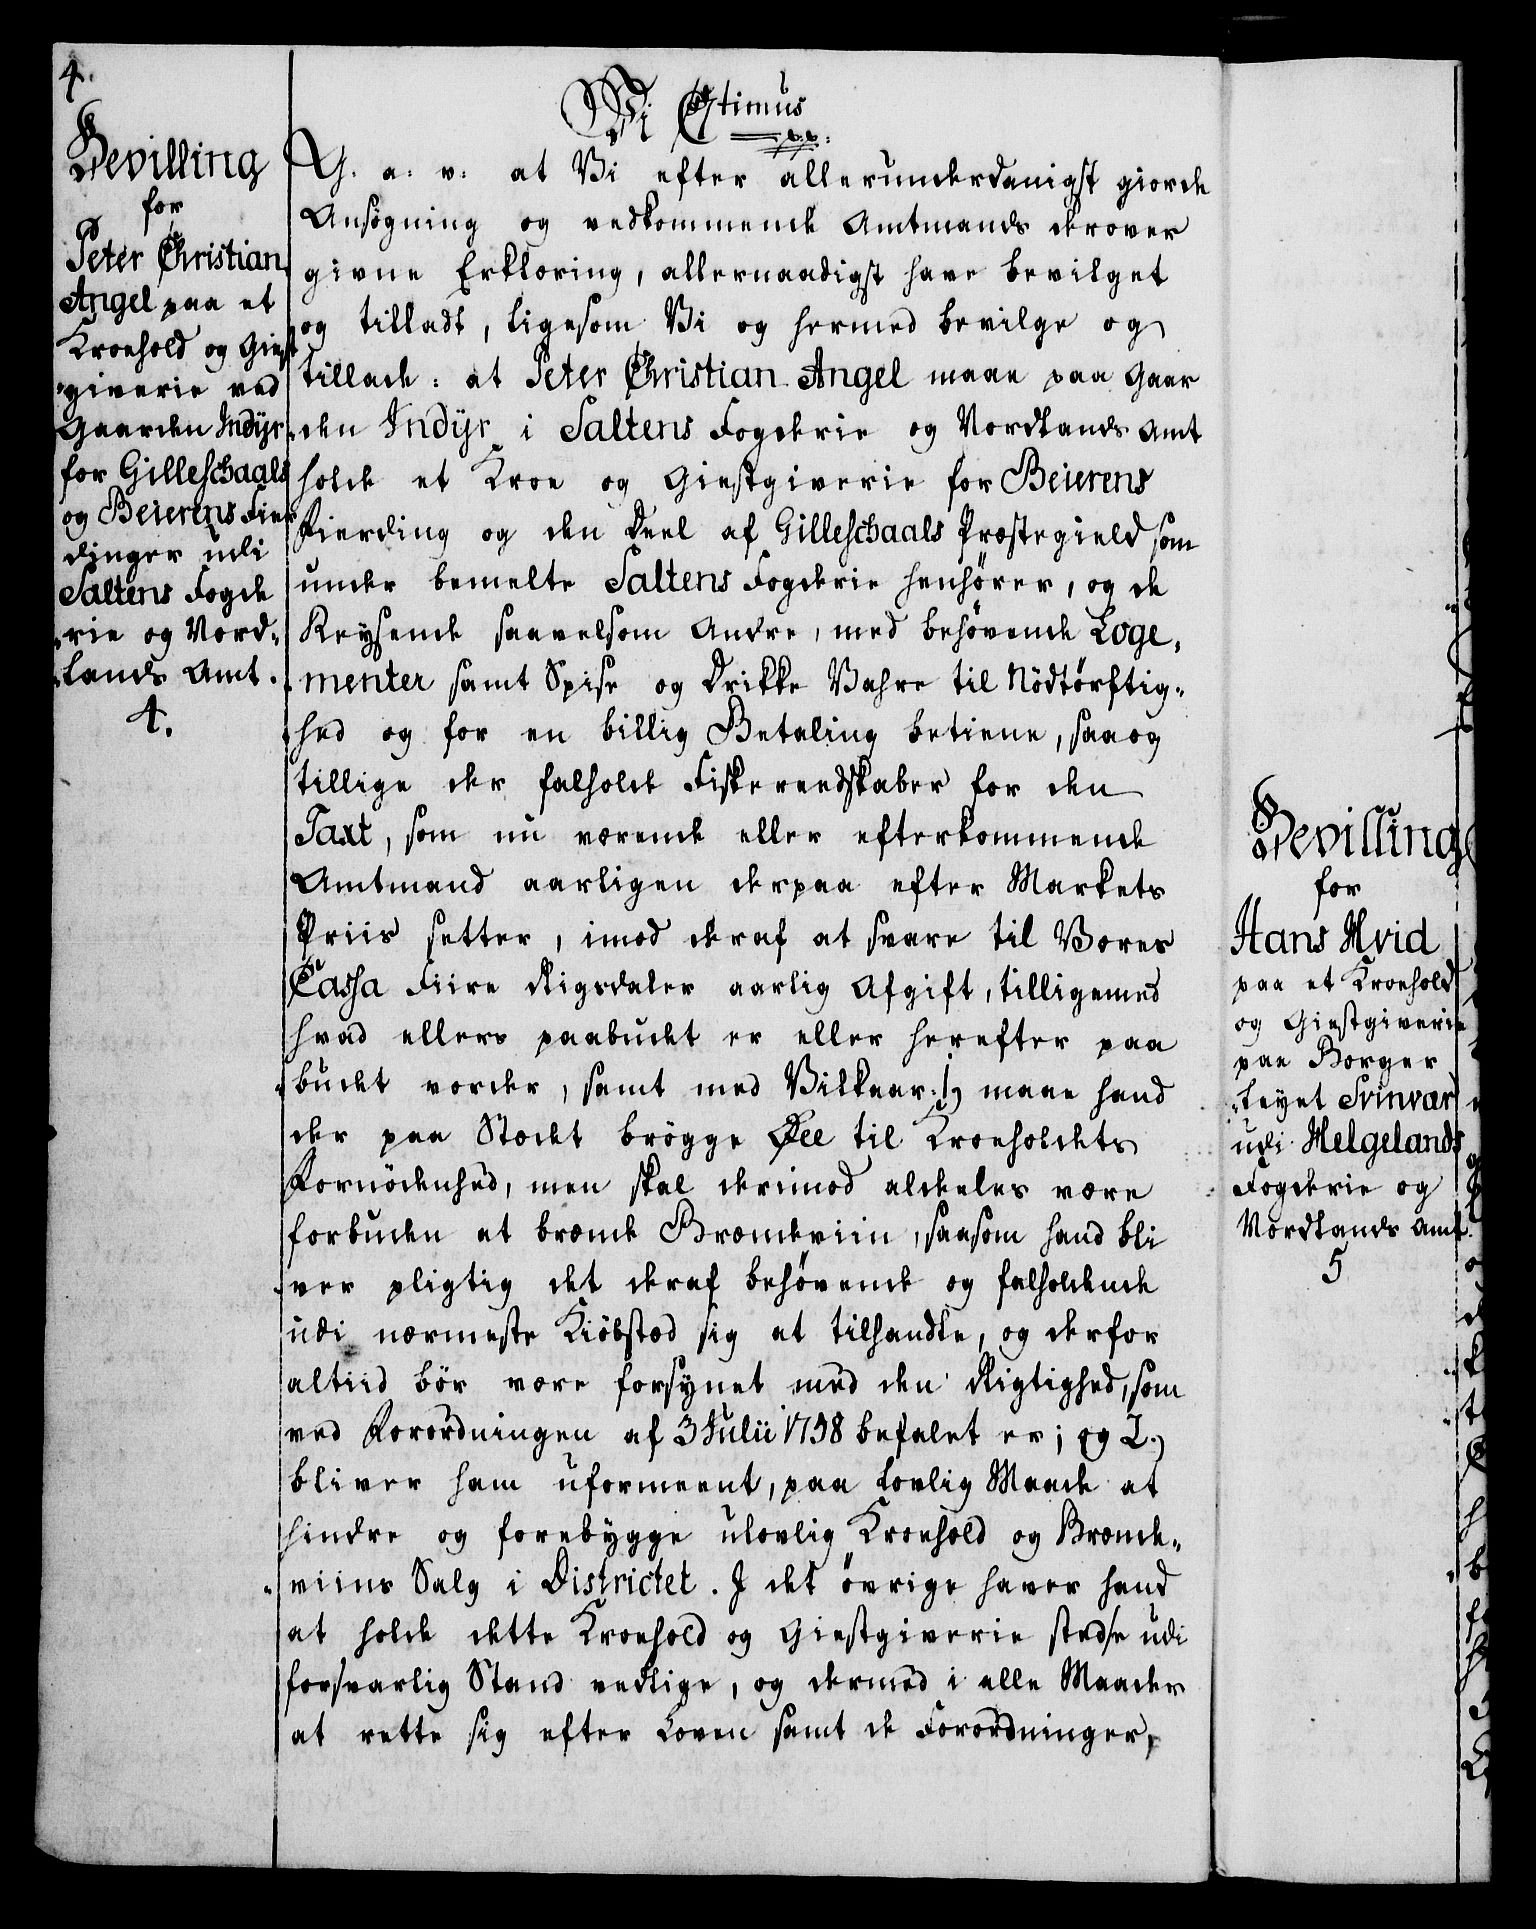 4.
Bevilling
for
Peter Christian
Angel paa et
Kroehold og Giest
giverie ved
Gaarden Indÿr
for Gilleschaals
og Beierens Fier
dinger udi
Saltens Fogde
rie og Nord-
lands Amt.
4.
Vi Ctimus
G. a: v: at Vi efter allerunderdanigst giorde
Ansøgning og vedkommende Amtmands derover
givne Erklæring, allernaadigst have bevilget
og tilladt, ligesom Vi og hermed bevilge og
tillade: at Peter Christian Angel maae paa Gaar
den Indÿr i Saltens Fogderie og Nordlands Amt
holde et Kroe og Giestgiverie for Beierens
Fierding og den Deel af Gilleschaals Præstegield som
under bemelte Saltens Fogderie henhører, og de
Reysende saavelsom Andre, med behøvende Loge-
menter samt Spise og Drikke Vahre til Nødtørftig-
hed og for en billig Betaling betiene, saa og
tillige der falholde Fiskereedskaber for den
Taxt, som nu værende eller efterkommende
Amtmand aarligen derpaa efter Markets
Priis setter, imod deraf at svare til Vores
Cassa Fiire Rigsdaler aarlig Afgift, tilligemed
hvad ellers paabudet er eller herefter paa
budet vorder, samt med Vilkaar: 1) maae hand
der paa Stædet brøgge Øll til Kroeholdets
Fornødenhed, men skal derimod aldeeles være
forbuden at brænde Brændeviin, saasom hand bli
ver pligtig det deraf behøvende og falholdende
udi nærmeste Kiøbstæd sig at tilhandle, og derfor
altiid bør være forsynet med den Rigtighed, som
ved Forordningen af 3 Julii 1738 befalet er; og 2.)
bliver ham uformeent, paa lovlig Maade at
hindre og forebygge ulovlig Kroehold og Brænde-
viins Salg i Districtet. I det øvrige haver hand
at holde dette Kroehold og Giestgiverie stedse udi
forsvarlig Stand vedlige, og dermed i alle Maader
at rette sig efter Loven samt de Forordninger,
Bevilling
for
Hans Hvid
paa et Kroehold
og Giestgiverie
paa Borger
leyet Svinvær
udi Helgelands
Fogderie og
Nordlands Amt.
5